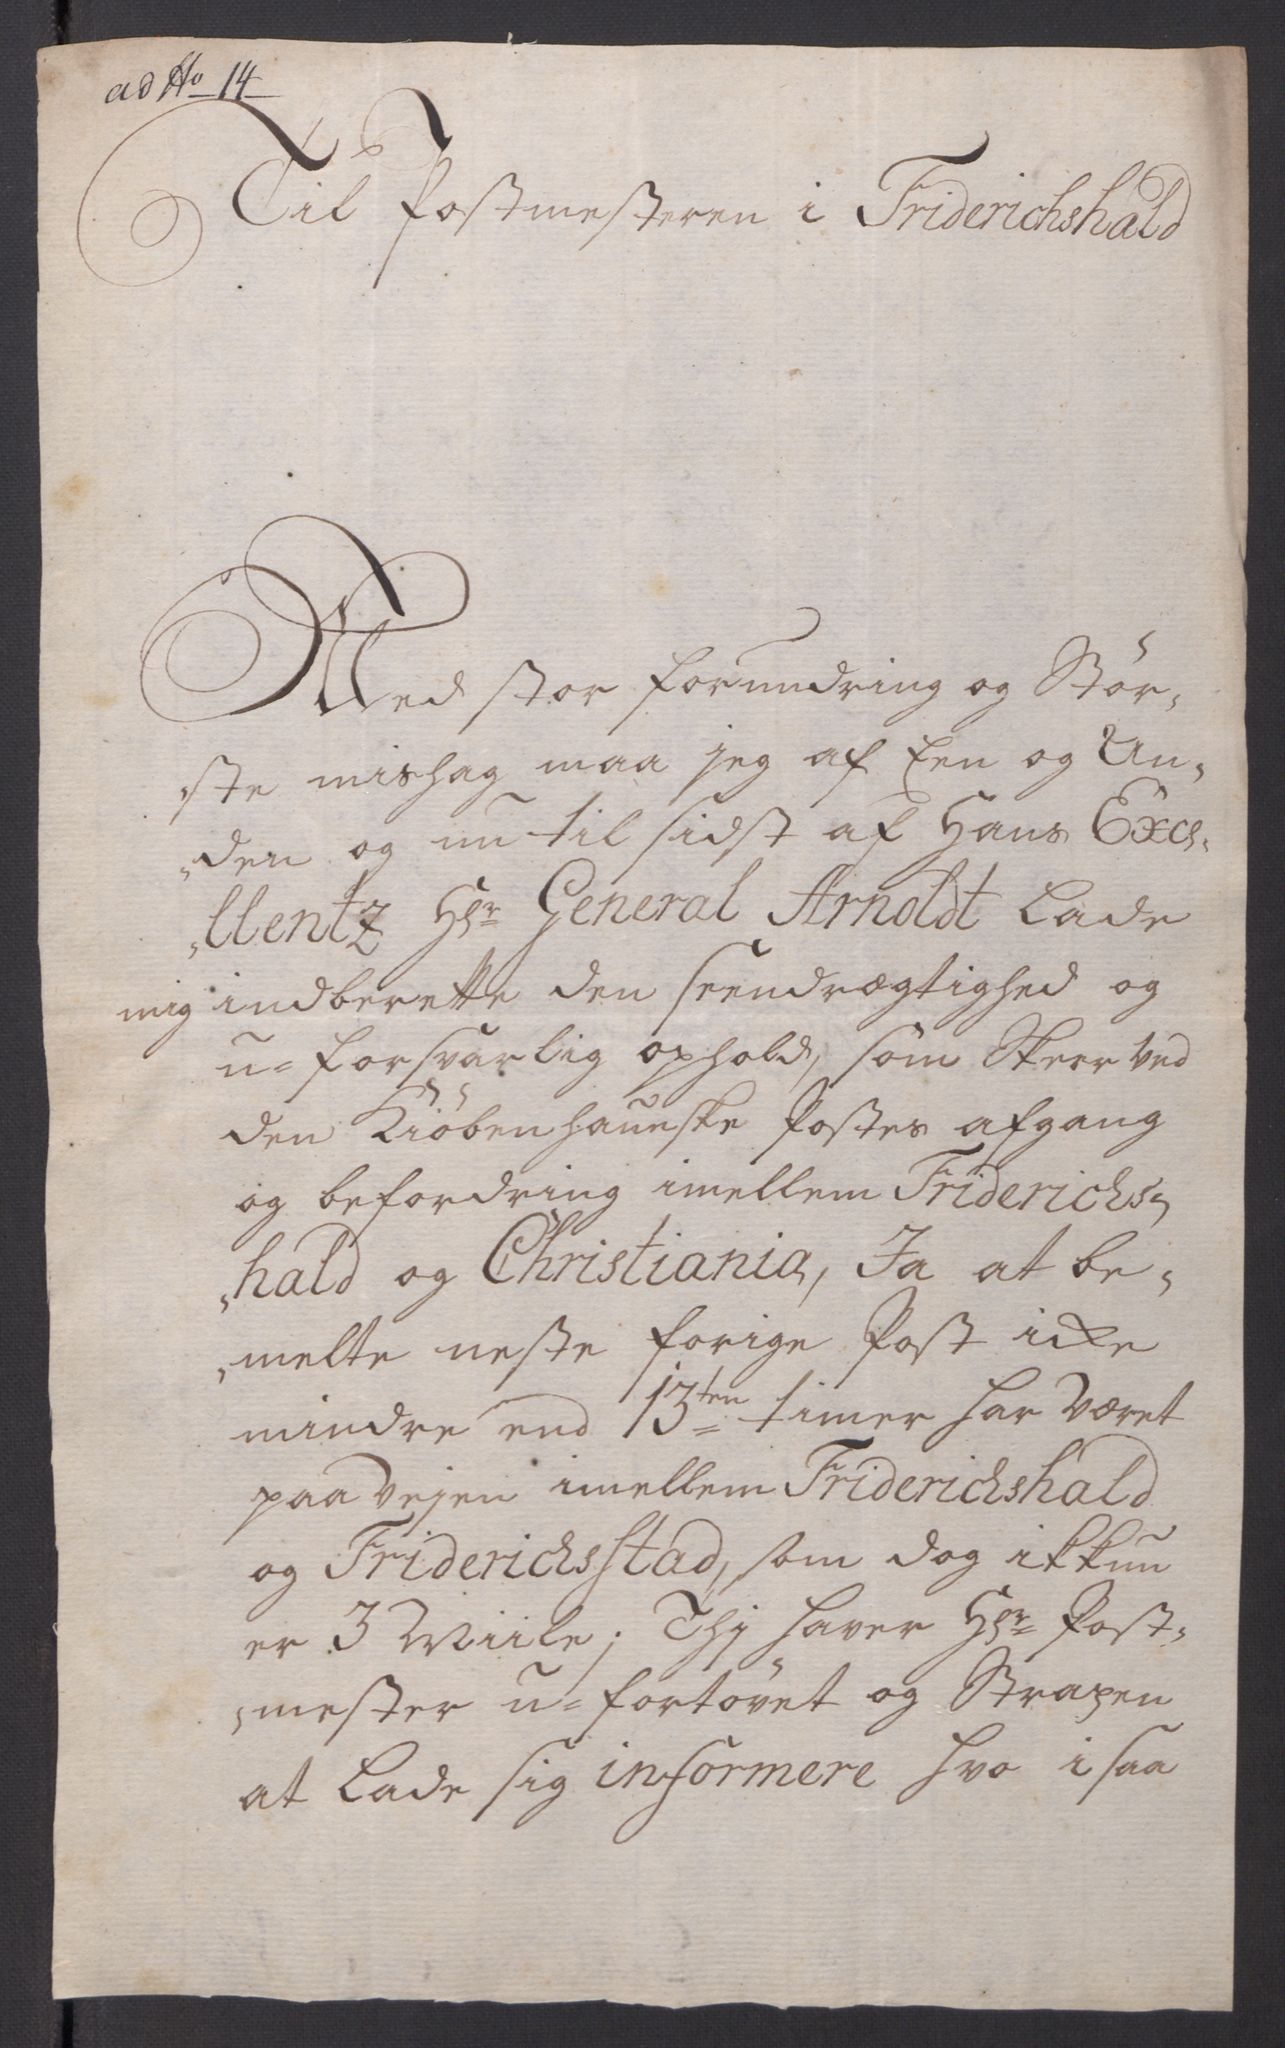 ad No 14
Til Postmesteren i Friderichshald
Med stor forundring og Stör„
„ste mishag maa jeg af Een og An„
„den og nu til sidst af Hans Exce„
„llentz Hr General Arnoldt lade
mig indberette den seendrægtighed og
u=forsvarlig ophold, som Skeer ved
den Kiöbenhaunske Postes afgang
og befordring imellem Friderichs„
„hald og Christiania, Ja at be„
„melte neste forige Post icke
mindre end 13ten timer har været
paa Vejen imellem Friderichshald
og Friderichsstad, som dog ikkun
er 3 Miile; Thj haver Hr Post„
„mester u=fortövet og Straxen
at lade sig informere hvo i saa